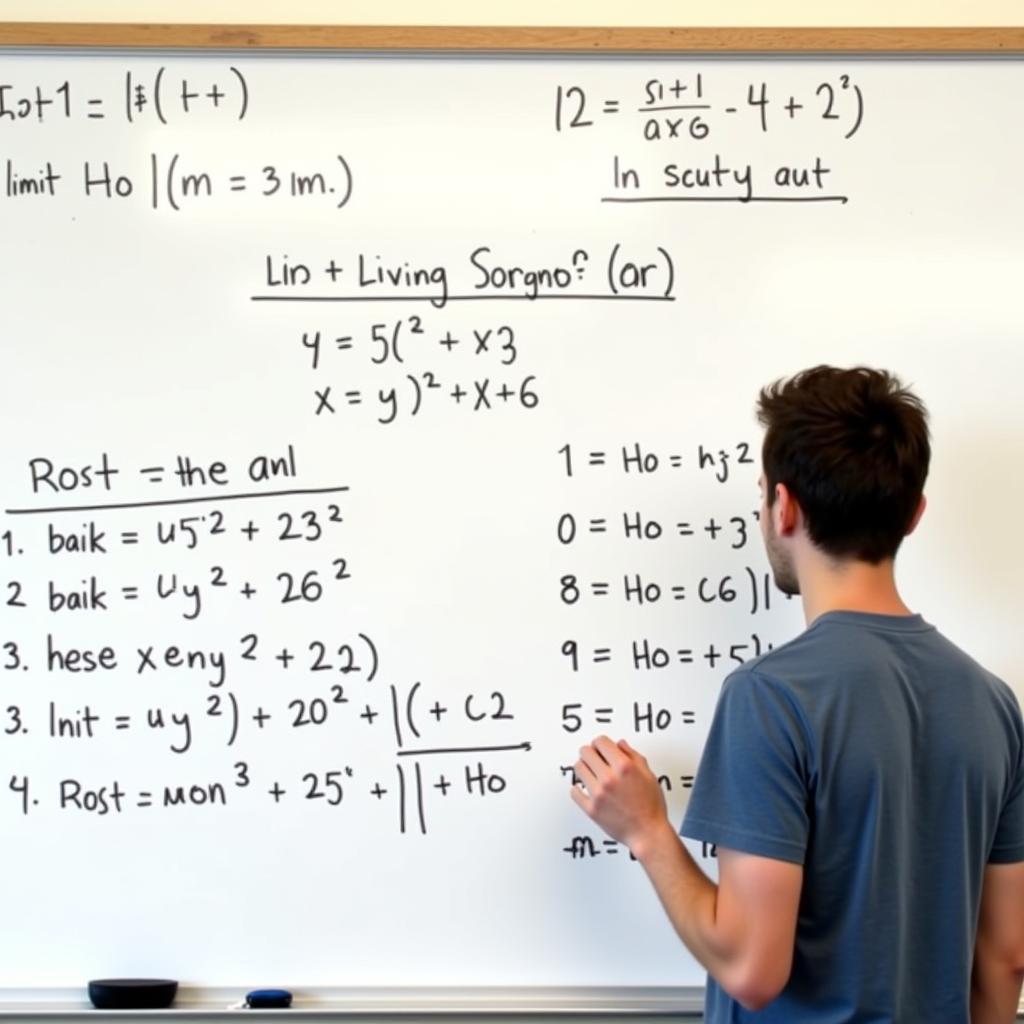 limit Ho |(m = 3 lm.)
12 = sı+1/axG - 4 + 2²)
In scuty aut
Lin + Living Sorgno? (ar)
y = 5(² + x3
x = y)² + x + 6
Rost = the anl
1. baik = u5² + 23²
2 baik = Uy² + 26²
3. hese xeny² + 22)
3. Init = uy²) + 20² + |(+ C2
4. Rost = mon³ + 25 + || + Ho
1 = Ho = hj2
0 = Ho = +3
8 = Ho = C6)|
9 = Ho = +5)
5 = Ho =